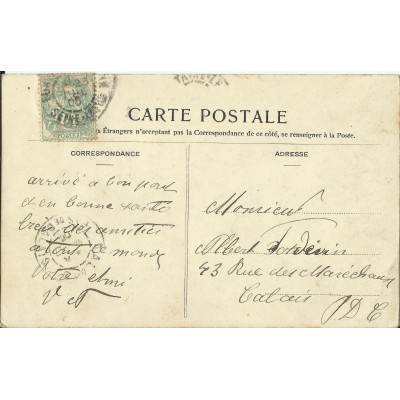 CARTE POSTALE
Étrangers n'acceptant pas la Correspondance de ce côté, se renseigner à la Poste.
CORRESPONDANCE
ADRESSE
arrivé a bon port
et en bonne santé
des amitiés
a tout le monde
Votre ami
Monsieur
Albert
43 Rue des Maréchaux
Calais
P D C